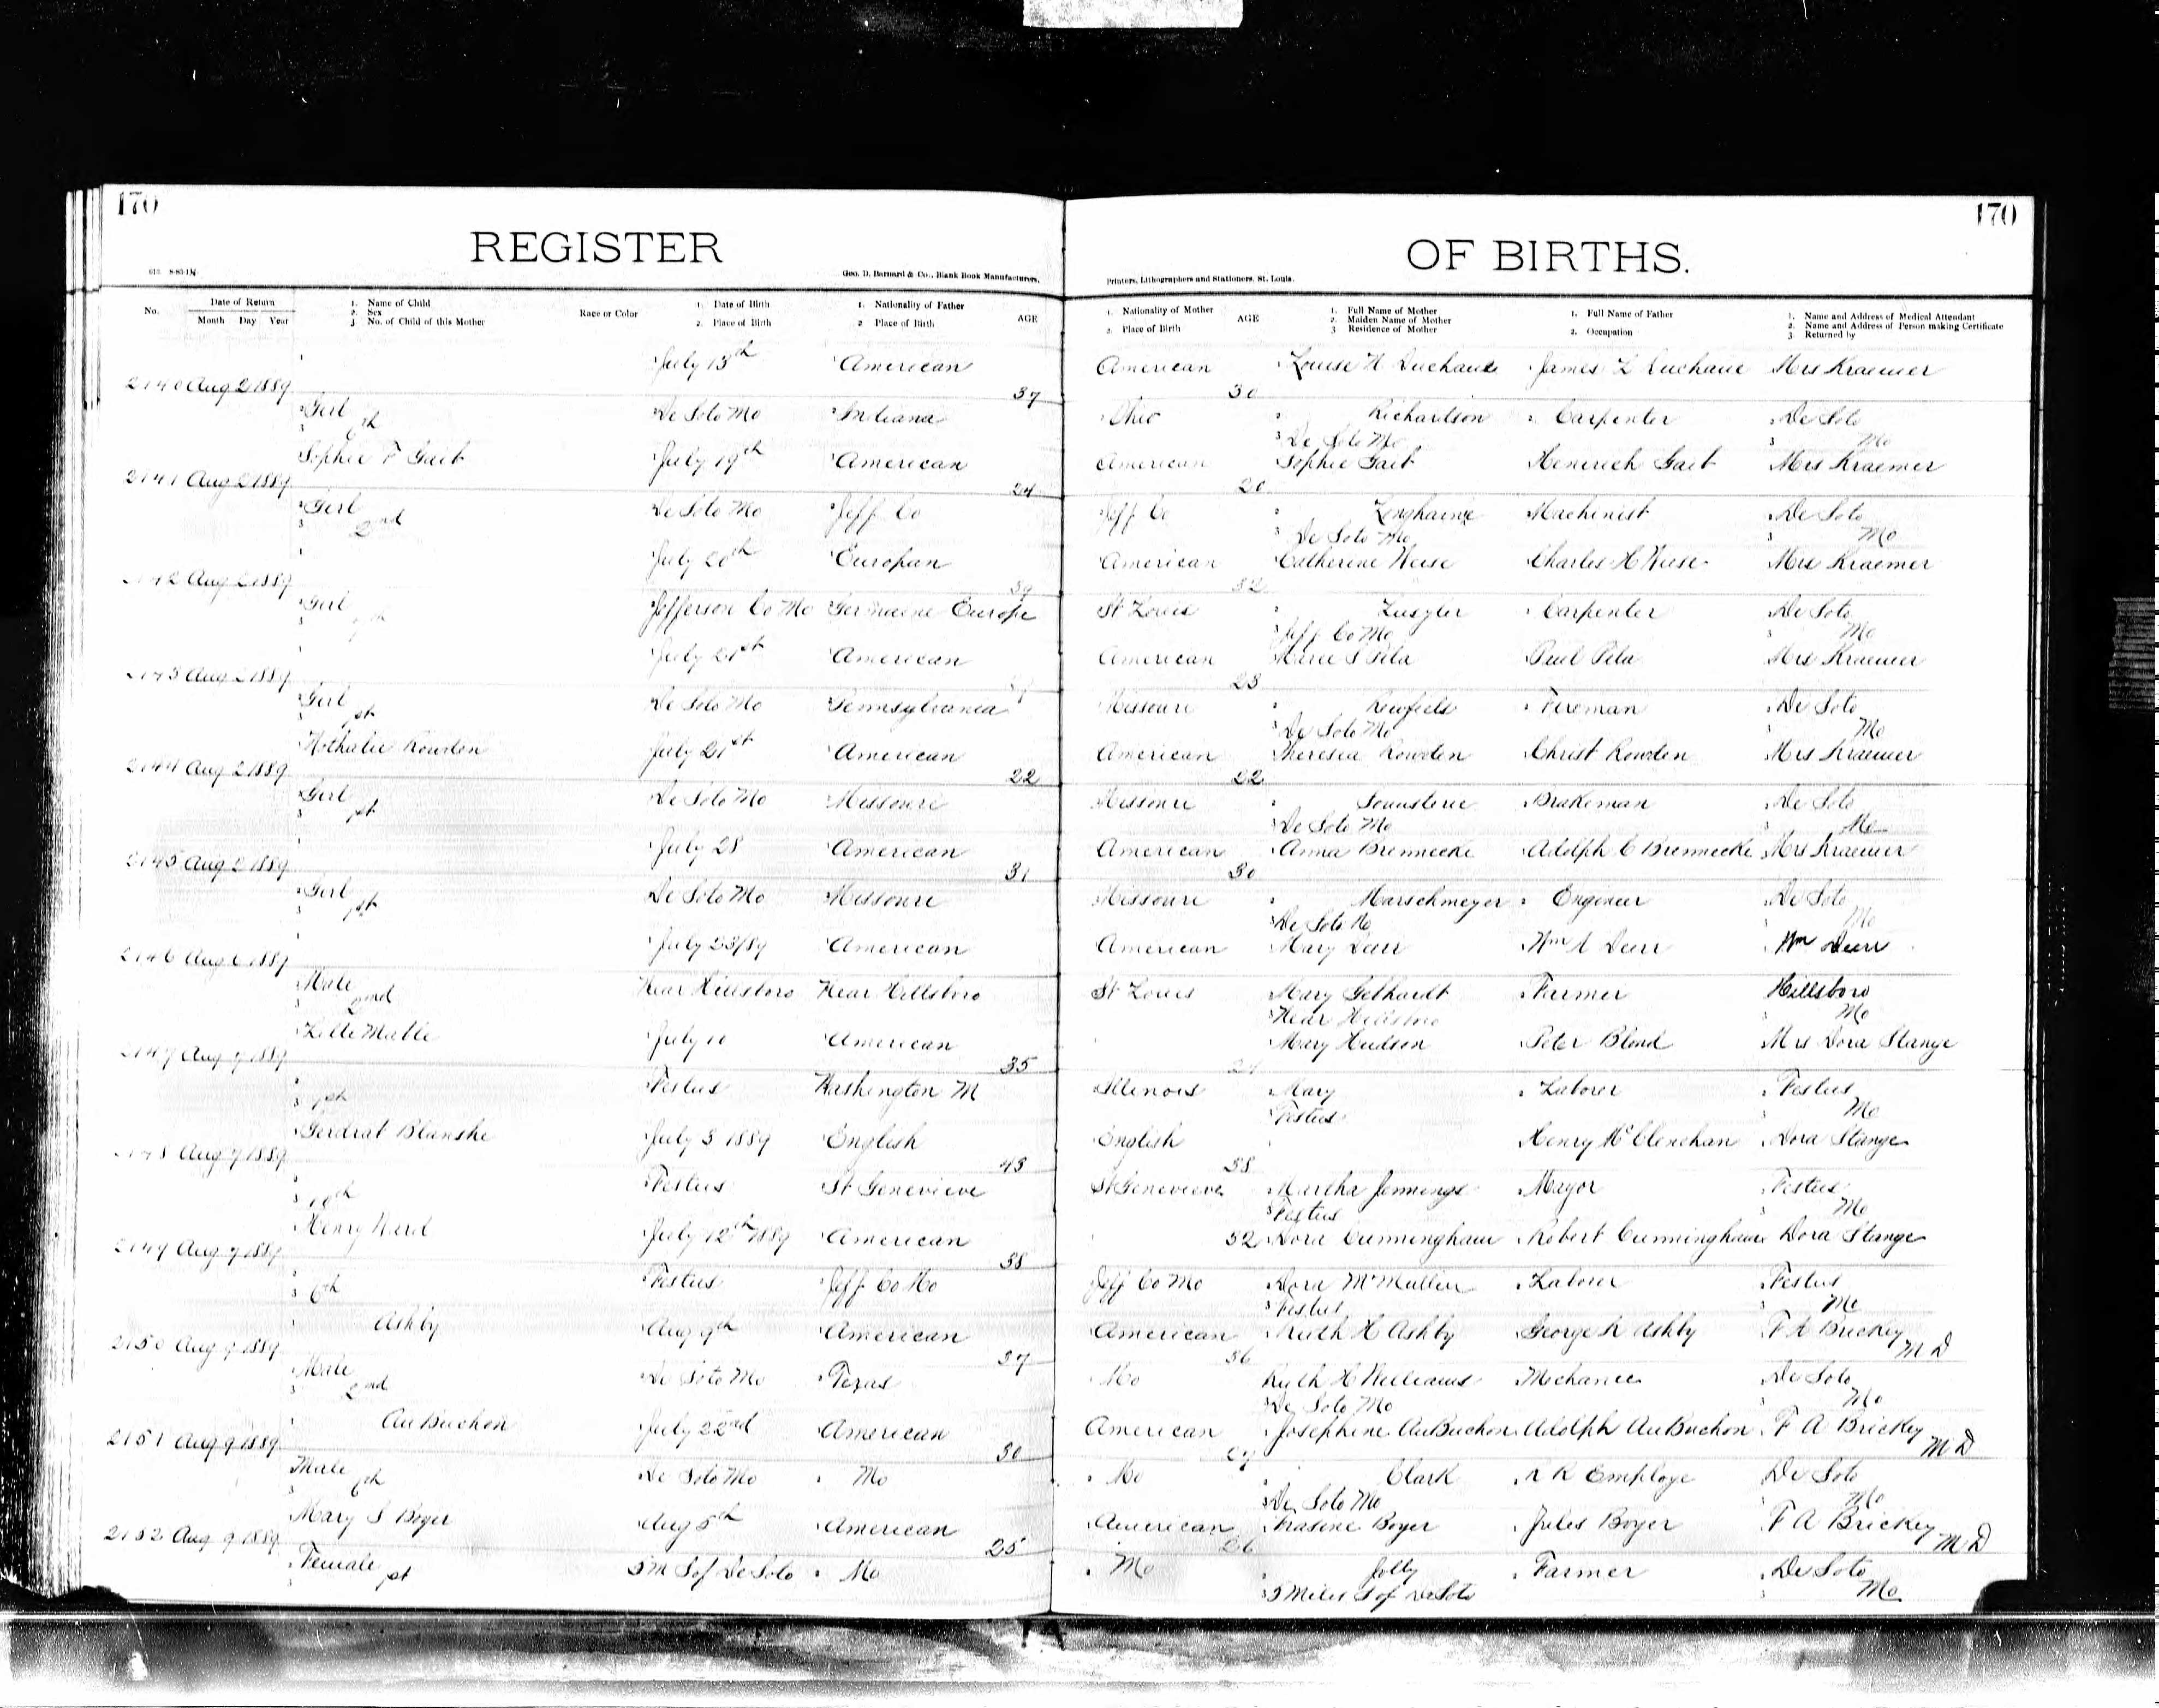 170
170
REGISTER
OF BIRTHS.
Geo. D. Barnard & Co., Blank Book Manufacturers,
Printers, Lithographers and Stationers, St. Louis.
No. Date of Return Month Day Year 1. Name of Child 2. Sex 3 No. of Child of this Mother Race or Color 1. Date of Birth 2. Place of Birth 1. Nationality of Father 2 Place of Birth AGE
1. Nationality of Mother 2. Place of Birth AGE 1. Full Name of Mother 2. Maiden Name of Mother 3 Residence of Mother 1. Full Name of Father 2. Occupation 1. Name and Address of Medical Attendant 2. Name and Address of Person making Certificate 3. Returned by
July 13th American American James L Mrs Kraemer
2140 Aug 2 1889 37 30
Girl De Soto Mo Indiana Ohio Richardson Carpenter De Soto
6th De Soto Mo Mo
Sophie F Gait July 19th American American Sophie Gait Henerich Gait Mrs Kraemer
2141 Aug 2 1889 24 20
Girl De Soto Mo Jeff Co Jeff Co Machinist De Soto
2nd De Soto Mo Mo
July 20th Europan American Catherine Weise Charles H Weise Mrs Kraemer
Aug 2 1889 39 32
Girl Jefferson Co Mo Europe St Louis Carpenter De Soto
Jeff Co Mo Mo
July 21st American American Mrs Kraemer
Aug 2 1889 23
Girl De Soto Mo Pennsylvania Missouri Fireman De Soto
1st De Soto Mo Mo
Nathalie Rowden July 21st American American Theresia Rowden Christ Rowden Mrs Kraemer
2144 Aug 2 1889 22 22
Girl De Soto Mo Missouri Missouri Brakeman De Soto
1st De Soto Mo Mo
July 28 American American Anna Brennecke Adolph C Brennecke Mrs Kraemer
2145 Aug 2 1889 31 30
Girl De Soto Mo Missouri Missouri Marschmeyer Engineer De Soto
1st De Soto Mo Mo
July 23/89 American American Mary Deer Wm A Deer Wm Deer
2146 Aug 6 1889
Male Near Hillsboro Near Hillsboro St Louis Mary Gebhardt Farmer Hillsboro
2nd Near Hillsboro Mo
July 10 American Mary Hudson Peter Blond Mrs Dora Stange
2147 Aug 7 1889 35
1st Festus Washington M Illinois Mary Laborer Festus
Festus Mo
Gerdrat Blanshe July 3 1889 English English Henry McClenehan Dora Stange
Aug 7 1889 43 38
10th Festus St Genevieve St Genevieve Martha Jennings Mayor Festus
Festus Mo
Henry Ward July 12th 1889 American 32 Dora Cunningham Robert Cunningham Dora Stange
2149 Aug 7 1889 38
6th Festus Jeff Co Mo Jeff Co Mo Dora McMullin Laborer Festus
Festus Mo
Ashby Aug 9th American American Ruth H Ashby George R Ashby F A Brickey
2150 Aug 9 1889 37 36 M D
Male De Soto Mo Texas Mo Ruth H Williams Mechanic De Soto
2nd De Soto Mo Mo
AuBuchon July 22nd American American Josephine AuBuchon Adolph AuBuchon F A Brickey
2151 Aug 9 1889 30 M D
Male De Soto Mo Mo Mo Clark R R Employe De Soto
6th De Soto Mo Mo
Mary S Boyer Aug 5th American American Boyer Jules Boyer F A Brickey
2152 Aug 9 1889 25 26 M D
Female 1st 5 m S of De Soto Mo Mo Jolly Farmer De Soto
5 Miles S of De Soto Mo